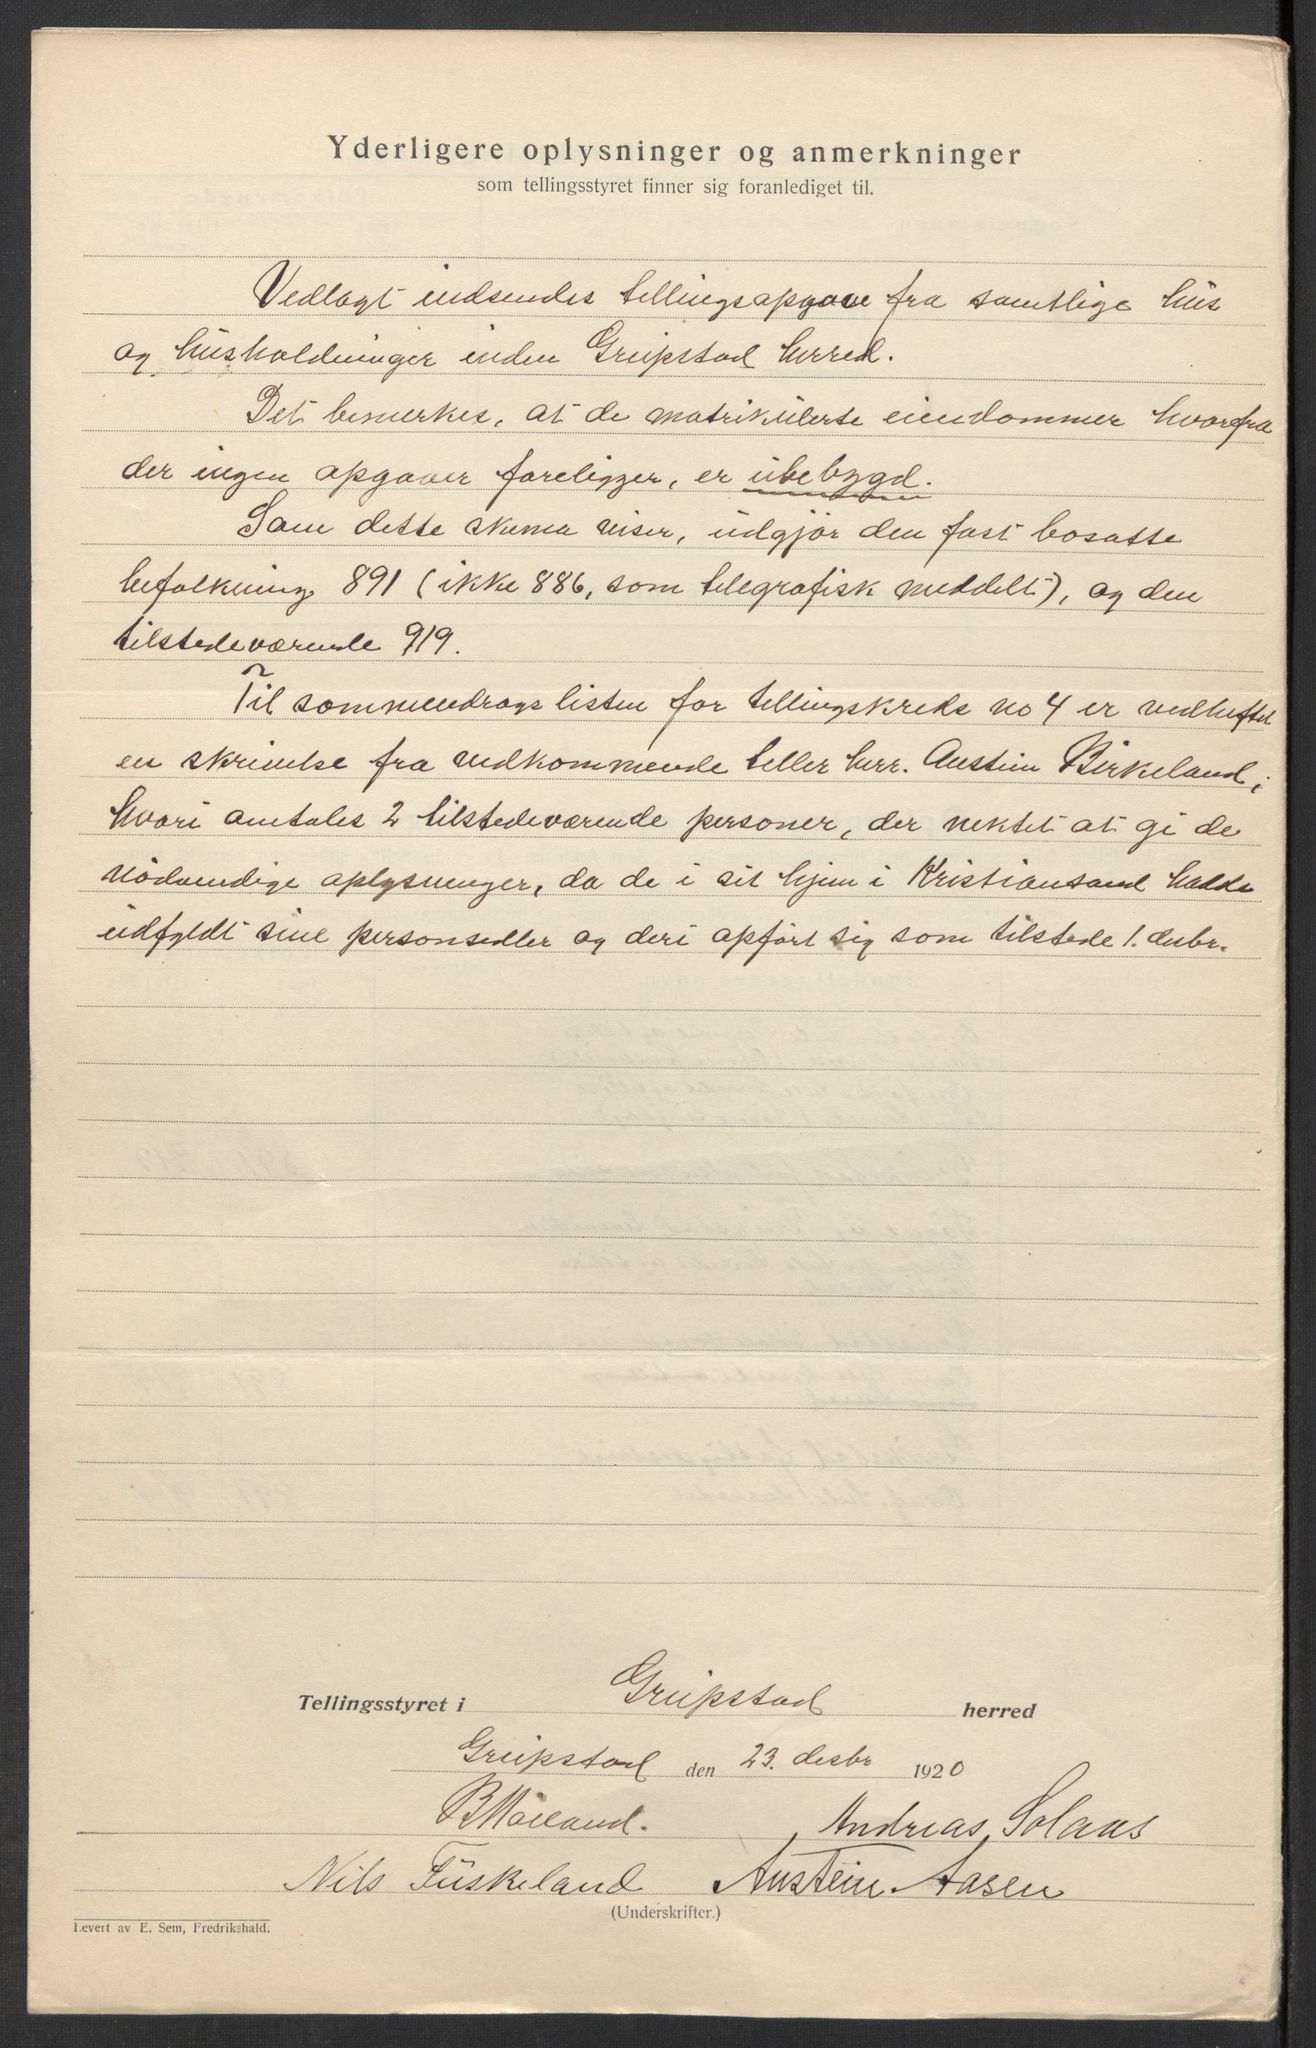 Yderligere oplysninger og anmerkninger
som tellingsstyret finner sig foranlediget til.
Vedlagt indsendes tellingsopgave fra samtlige hus
og husholdninger inden Greipstad herred.
Det bemerkes, at de matrikulerte eiendommer hvorfra
der ingen opgaver foreligger, er ubebygd.
Som dette skema viser, udgjør den fast bosatte
befolkning 891 (ikke 886, som telegrafisk meddelt), og den
tilstedeværende 919.
Til sammendragslisten for tellingskreds no 4 er vedheftet
en skrivelse fra vedkommende teller herr. Austein Birkeland,
hvori omtales 2 tilstedeværende personer, der nektet at gi de
nödvendige oplysninger, da de i sit hjem i Kristiansand hadde
udfyldt sine personsedler og deri opført sig som tilstede 1. desbr.
Tellingsstyret i Greipstad herred
Greipstad den 23. desbr 1920
B Möland. Andreas Solaas
Nils Fuskeland Austein Aasen
(Underskrifter.)
Levert av E. Sem, Fredrikshald.